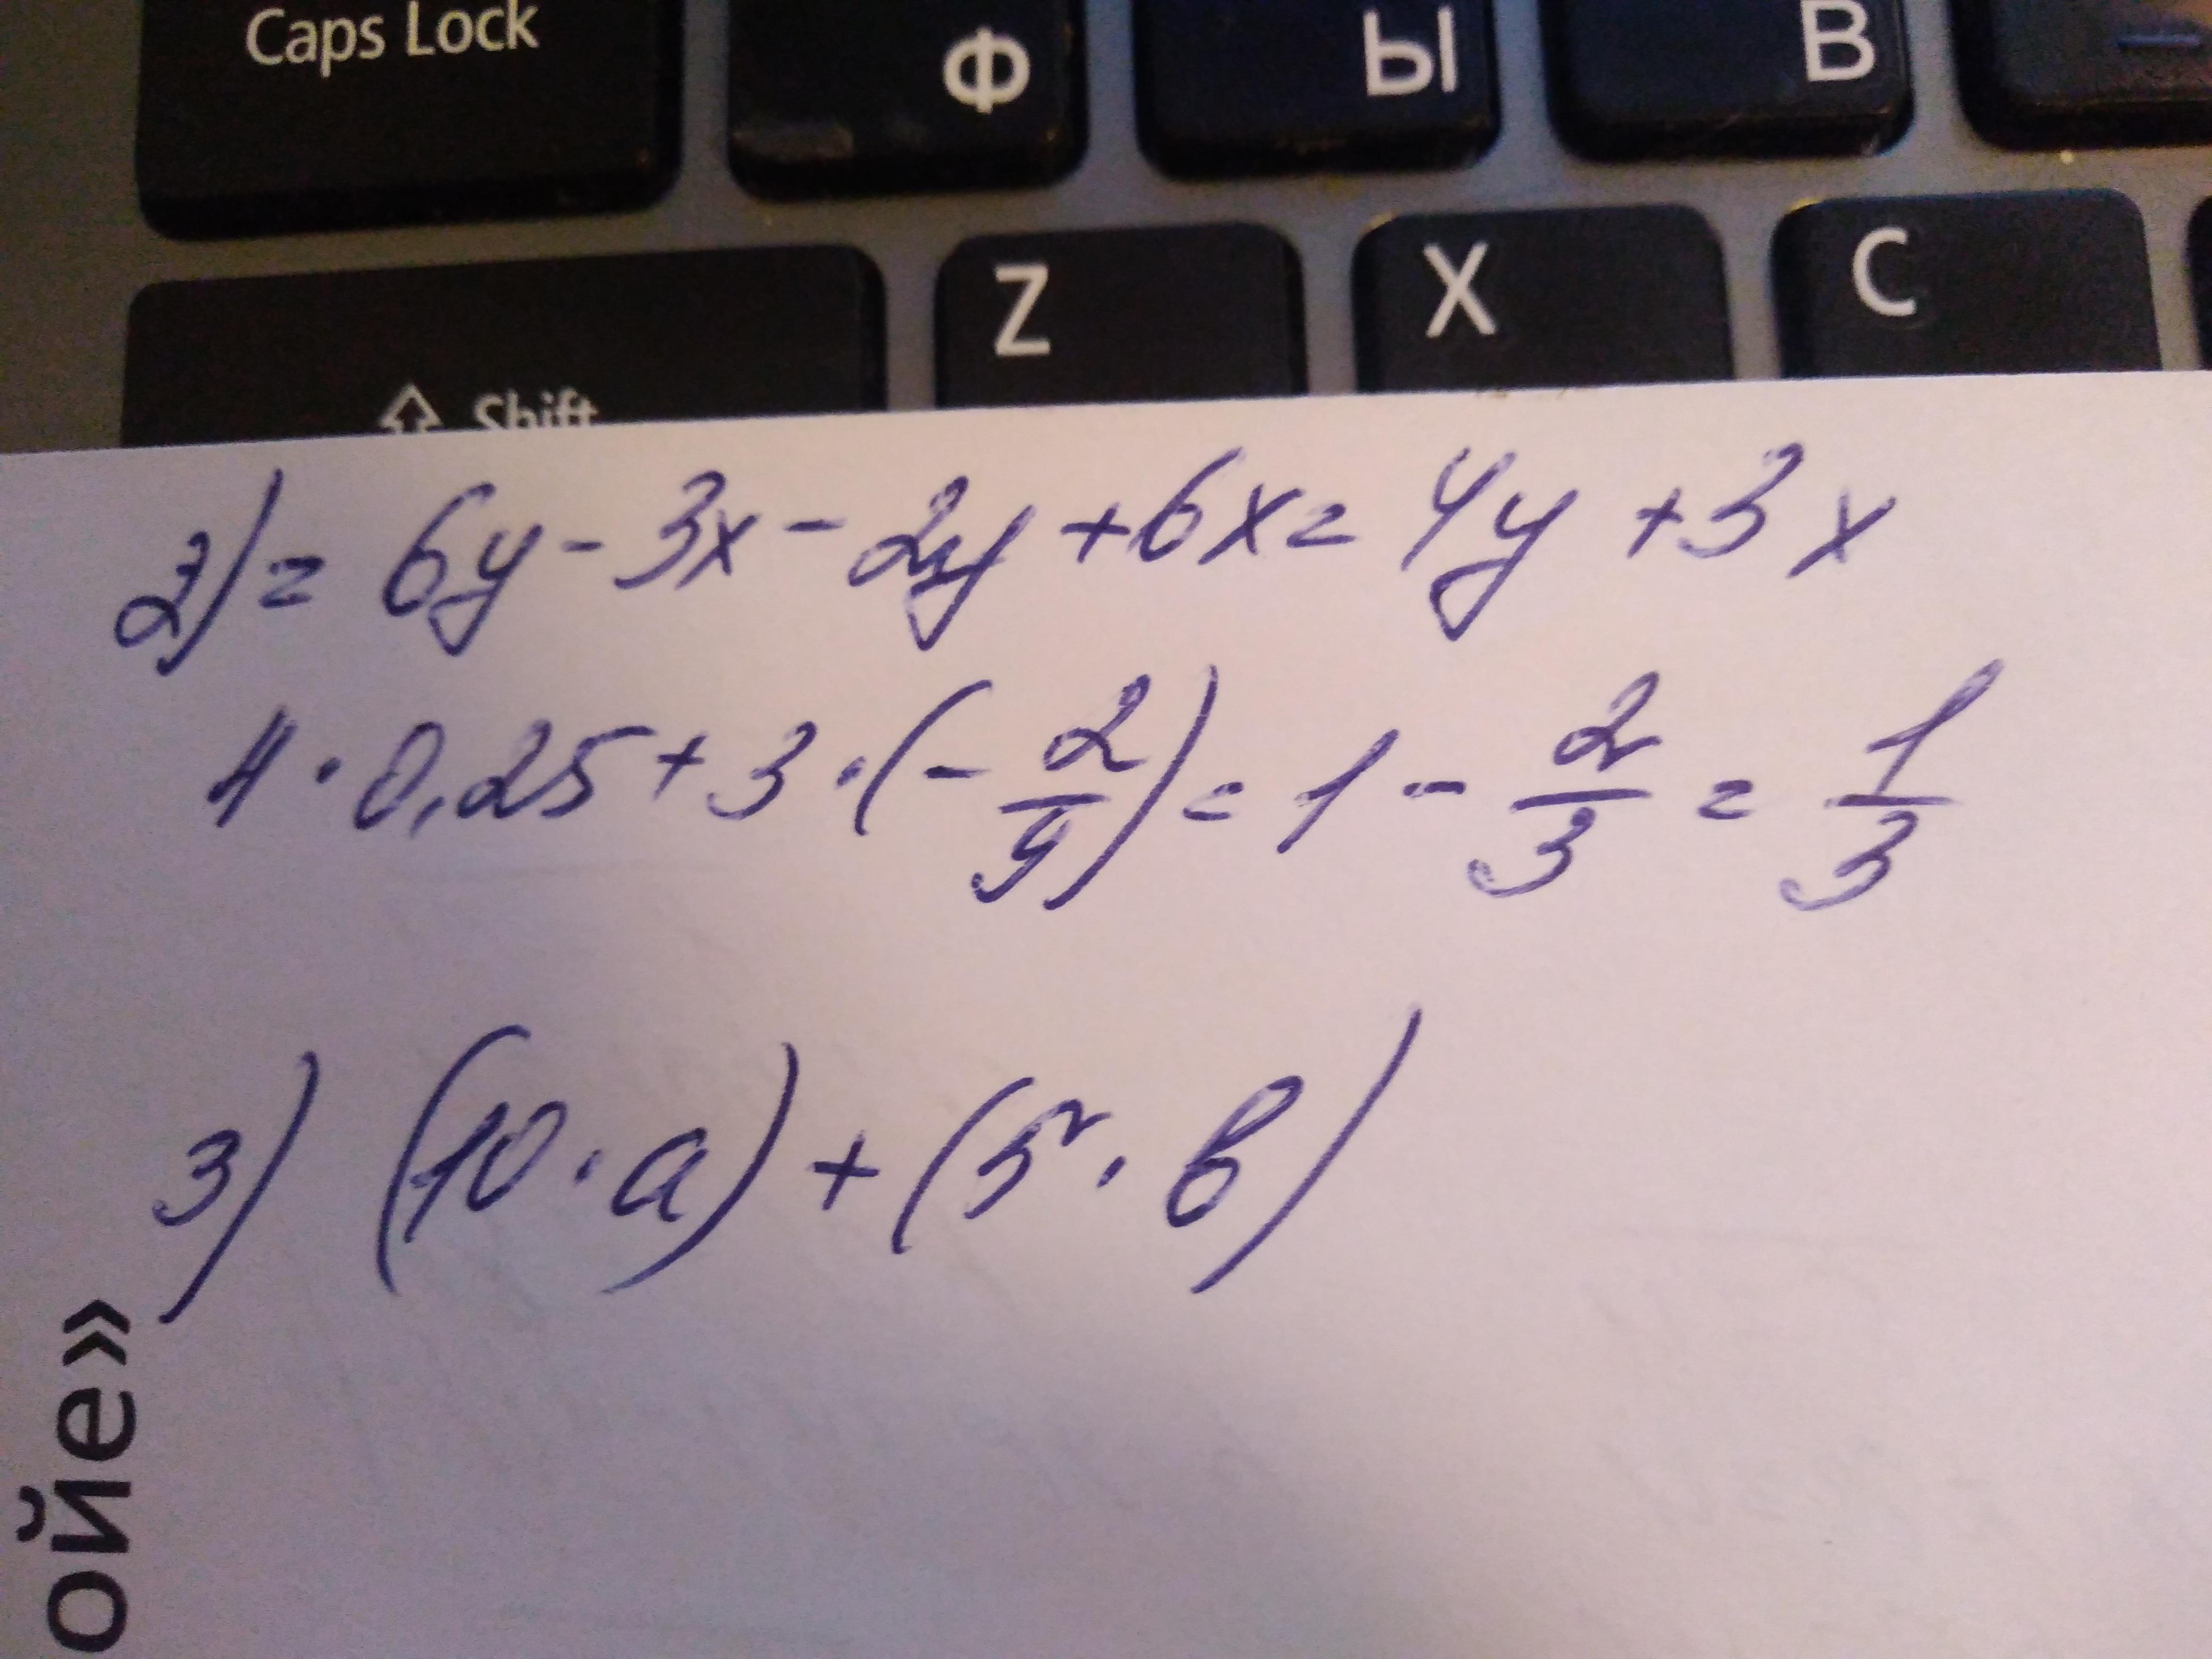 Caps Lock Ф Ы В
Shift Z X C
2) = 6y - 3x - 2y + 6x = 4y + 3x
4 · 0,25 + 3 · (- 2/9) = 1 - 2/3 = 1/3
3) (10 · a) + (5 · b)
ойе»